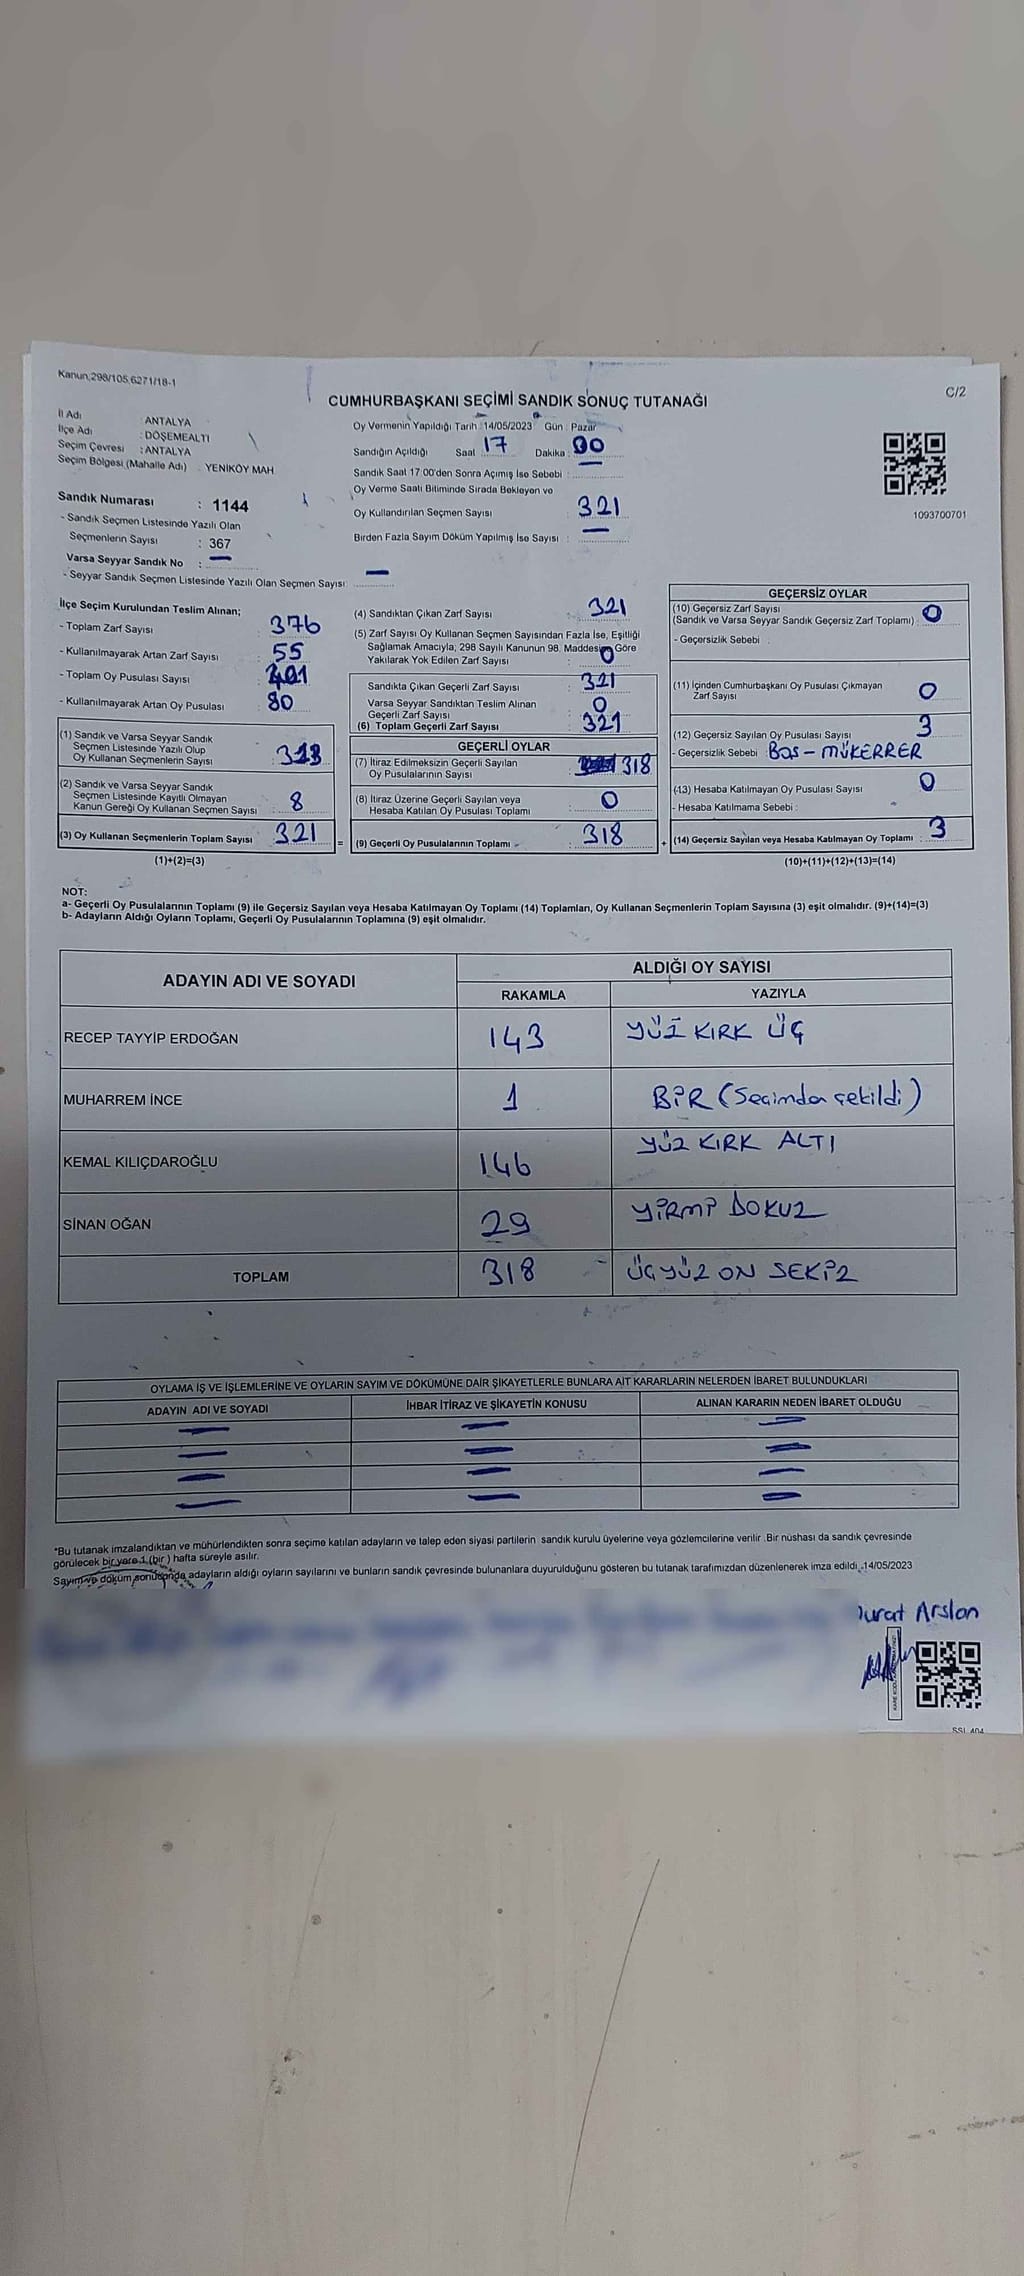 Kanun;298/105,6271/18-1
C/2
CUMHURBAŞKANI SEÇİMİ SANDIK SONUÇ TUTANAĞI
İl Adı : ANTALYA
İlçe Adı : DÖŞEMEALTI
Seçim Çevresi : ANTALYA
Seçim Bölgesi (Mahalle Adı) YENİKÖY MAH
Sandık Numarası : 1144
- Sandık Seçmen Listesinde Yazılı Olan
Seçmenlerin Sayısı : 367
Varsa Seyyar Sandık No : —
- Seyyar Sandık Seçmen Listesinde Yazılı Olan Seçmen Sayısı: —
Oy Vermenin Yapıldığı Tarih : 14/05/2023 Gün : Pazar
Sandığın Açıldığı Saat 17 Dakika : 00
Sandık Saat 17:00'den Sonra Açılmış İse Sebebi : —
Oy Verme Saati Bitiminde Sırada Bekleyen ve
Oy Kullandırılan Seçmen Sayısı 321
Birden Fazla Sayım Döküm Yapılmış İse Sayısı : —
1093700701
İlçe Seçim Kurulundan Teslim Alınan;
- Toplam Zarf Sayısı : 376
- Kullanılmayarak Artan Zarf Sayısı : 55
- Toplam Oy Pusulası Sayısı : 401
- Kullanılmayarak Artan Oy Pusulası : 80
(1) Sandık ve Varsa Seyyar Sandık
Seçmen Listesinde Yazılı Olup
Oy Kullanan Seçmenlerin Sayısı : 313
(2) Sandık ve Varsa Seyyar Sandık
Seçmen Listesinde Kayıtlı Olmayan
Kanun Gereği Oy Kullanan Seçmen Sayısı : 8
(3) Oy Kullanan Seçmenlerin Toplam Sayısı : 321
(1)+(2)=(3)
=
(4) Sandıktan Çıkan Zarf Sayısı : 321
(5) Zarf Sayısı Oy Kullanan Seçmen Sayısından Fazla İse, Eşitliği
Sağlamak Amacıyla; 298 Sayılı Kanunun 98. Maddesine Göre
Yakılarak Yok Edilen Zarf Sayısı : 0
Sandıkta Çıkan Geçerli Zarf Sayısı : 321
Varsa Seyyar Sandıktan Teslim Alınan
Geçerli Zarf Sayısı : 0
(6) Toplam Geçerli Zarf Sayısı : 321
GEÇERLİ OYLAR
(7) İtiraz Edilmeksizin Geçerli Sayılan
Oy Pusulalarının Sayısı : 318
(8) İtiraz Üzerine Geçerli Sayılan veya
Hesaba Katılan Oy Pusulası Toplamı : 0
(9) Geçerli Oy Pusulalarının Toplamı : 318
+
GEÇERSİZ OYLAR
(10) Geçersiz Zarf Sayısı
(Sandık ve Varsa Seyyar Sandık Geçersiz Zarf Toplamı) : 0
- Geçersizlik Sebebi :
(11) İçinden Cumhurbaşkanı Oy Pusulası Çıkmayan
Zarf Sayısı : 0
(12) Geçersiz Sayılan Oy Pusulası Sayısı : 3
- Geçersizlik Sebebi : BOŞ - MÜKERRER
(13) Hesaba Katılmayan Oy Pusulası Sayısı : 0
- Hesaba Katılmama Sebebi :
(14) Geçersiz Sayılan veya Hesaba Katılmayan Oy Toplamı : 3
(10)+(11)+(12)+(13)=(14)
NOT:
a- Geçerli Oy Pusulalarının Toplamı (9) ile Geçersiz Sayılan veya Hesaba Katılmayan Oy Toplamı (14) Toplamları, Oy Kullanan Seçmenlerin Toplam Sayısına (3) eşit olmalıdır. (9)+(14)=(3)
b- Adayların Aldığı Oyların Toplamı, Geçerli Oy Pusulalarının Toplamına (9) eşit olmalıdır.
ADAYIN ADI VE SOYADI ALDIĞI OY SAYISI
RAKAMLA YAZIYLA
RECEP TAYYİP ERDOĞAN 143 YÜZ KIRK ÜÇ
MUHARREM İNCE 1 BİR (Seçimden çekildi)
KEMAL KILIÇDAROĞLU 146 YÜZ KIRK ALTI
SİNAN OĞAN 29 YİRMİ DOKUZ
TOPLAM 318 ÜÇYÜZ ON SEKİZ
OYLAMA İŞ VE İŞLEMLERİNE VE OYLARIN SAYIM VE DÖKÜMÜNE DAİR ŞİKAYETLERLE BUNLARA AİT KARARLARIN NELERDEN İBARET BULUNDUKLARI
ADAYIN ADI VE SOYADI İHBAR İTİRAZ VE ŞİKAYETİN KONUSU ALINAN KARARIN NEDEN İBARET OLDUĞU
— — —
— — —
— — —
— — —
*Bu tutanak imzalandıktan ve mühürlendikten sonra seçime katılan adayların ve talep eden siyasi partilerin sandık kurulu üyelerine veya gözlemcilerine verilir. Bir nüshası da sandık çevresinde
görülecek bir yere 1 (bir) hafta süreyle asılır.
Sayım ve döküm sonucunda adayların aldığı oyların sayılarını ve bunların sandık çevresinde bulunanlara duyurulduğunu gösteren bu tutanak tarafımızdan düzenlenerek imza edildi. 14/05/2023
Arslan